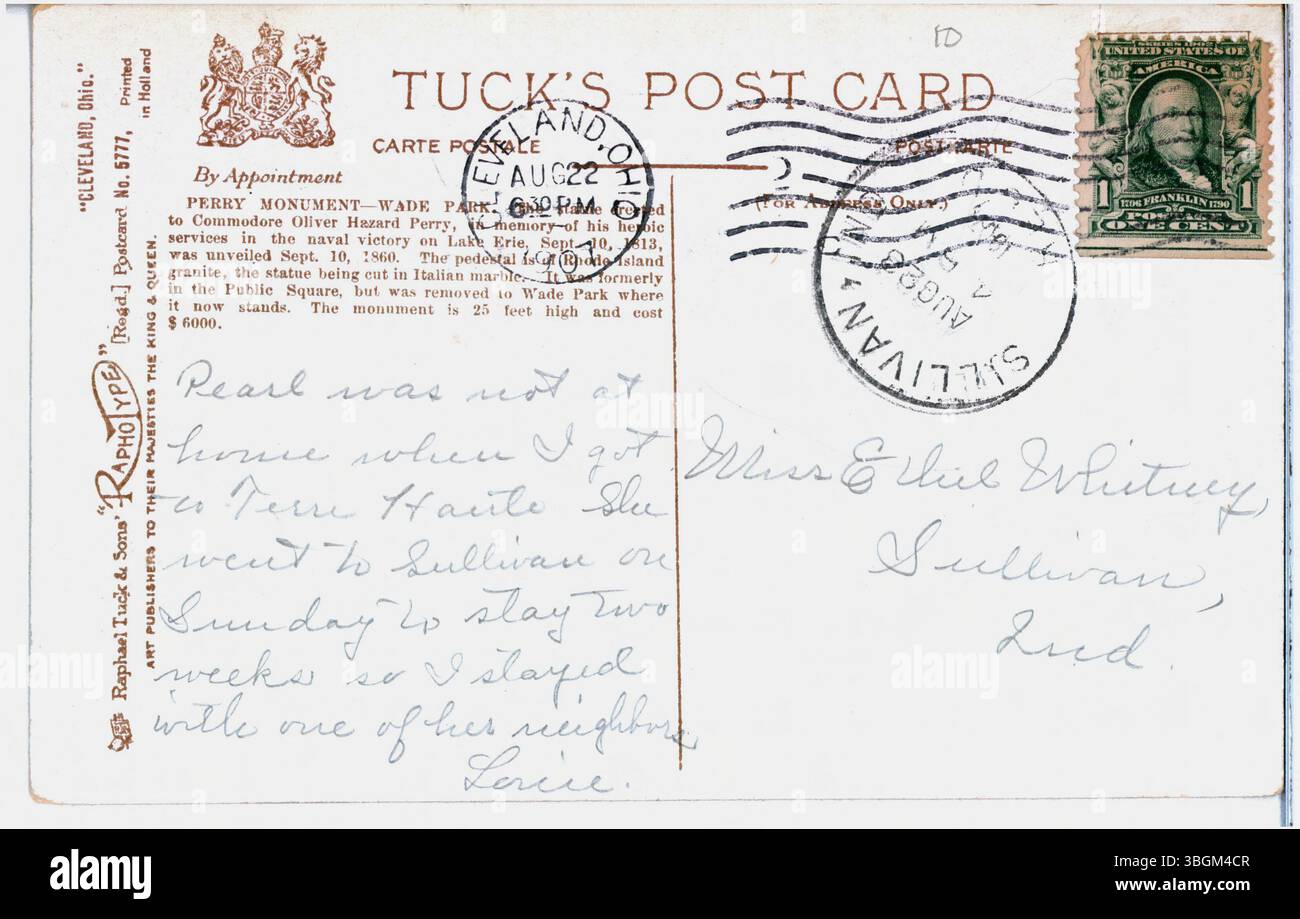 "CLEVELAND, Ohio."
Raphael Tuck & Sons' "RAPHOTYPE" [Regd.] Postcard No. 5777, Printed in Holland
ART PUBLISHERS TO THEIR MAJESTIES THE KING & QUEEN.
By Appointment
TUCK'S POST CARD
CARTE POSTALE
POSTKARTE
(FOR ADDRESS ONLY.)
PERRY MONUMENT—WADE PARK. The statue erected
to Commodore Oliver Hazard Perry, in memory of his heroic
services in the naval victory on Lake Erie, Sept. 10, 1813,
was unveiled Sept. 10, 1860. The pedestal is of Rhode Island
granite, the statue being cut in Italian marble. It was formerly
in the Public Square, but was removed to Wade Park where
it now stands. The monument is 25 feet high and cost
$ 6000.
CLEVELAND, OHIO
AUG 22
6 30 PM
1907
10
SERIES 1902
UNITED STATES OF
AMERICA
1 1706 FRANKLIN 1790 1
POSTAGE
ONE CENT
SULLIVAN
AUG 23
Pearl was not at
home when I got
to Terre Haute She
went to Sullivan on
Sunday to stay two
weeks so I stayed
with one of her neighbors
Miss Ethel Whitney,
Sullivan,
Ind.
alamy
Image ID: 3BGM4CR
www.alamy.com